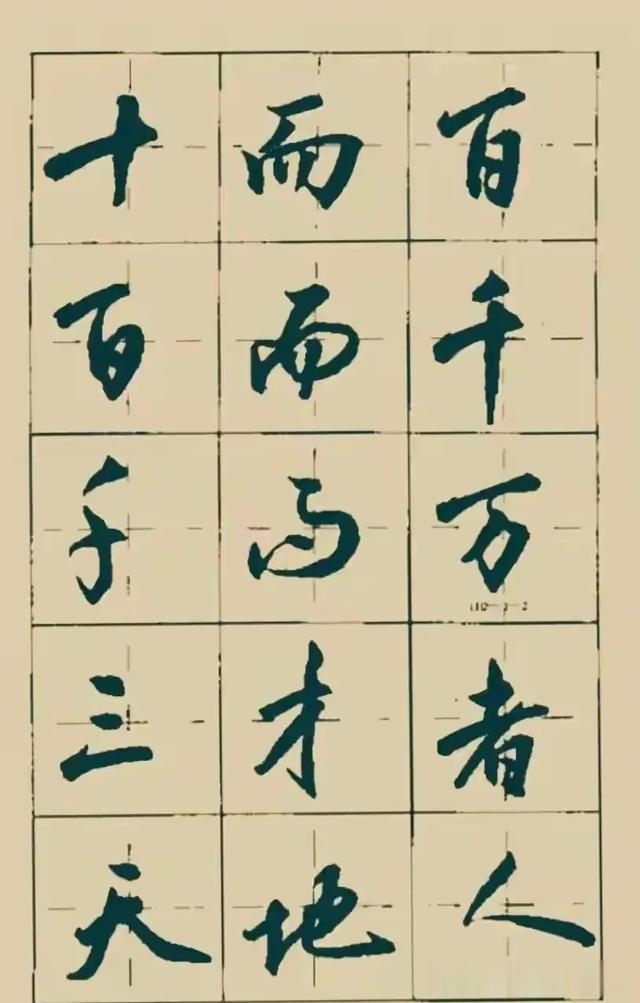 十而百
百而千
千而万
三才者
天地人